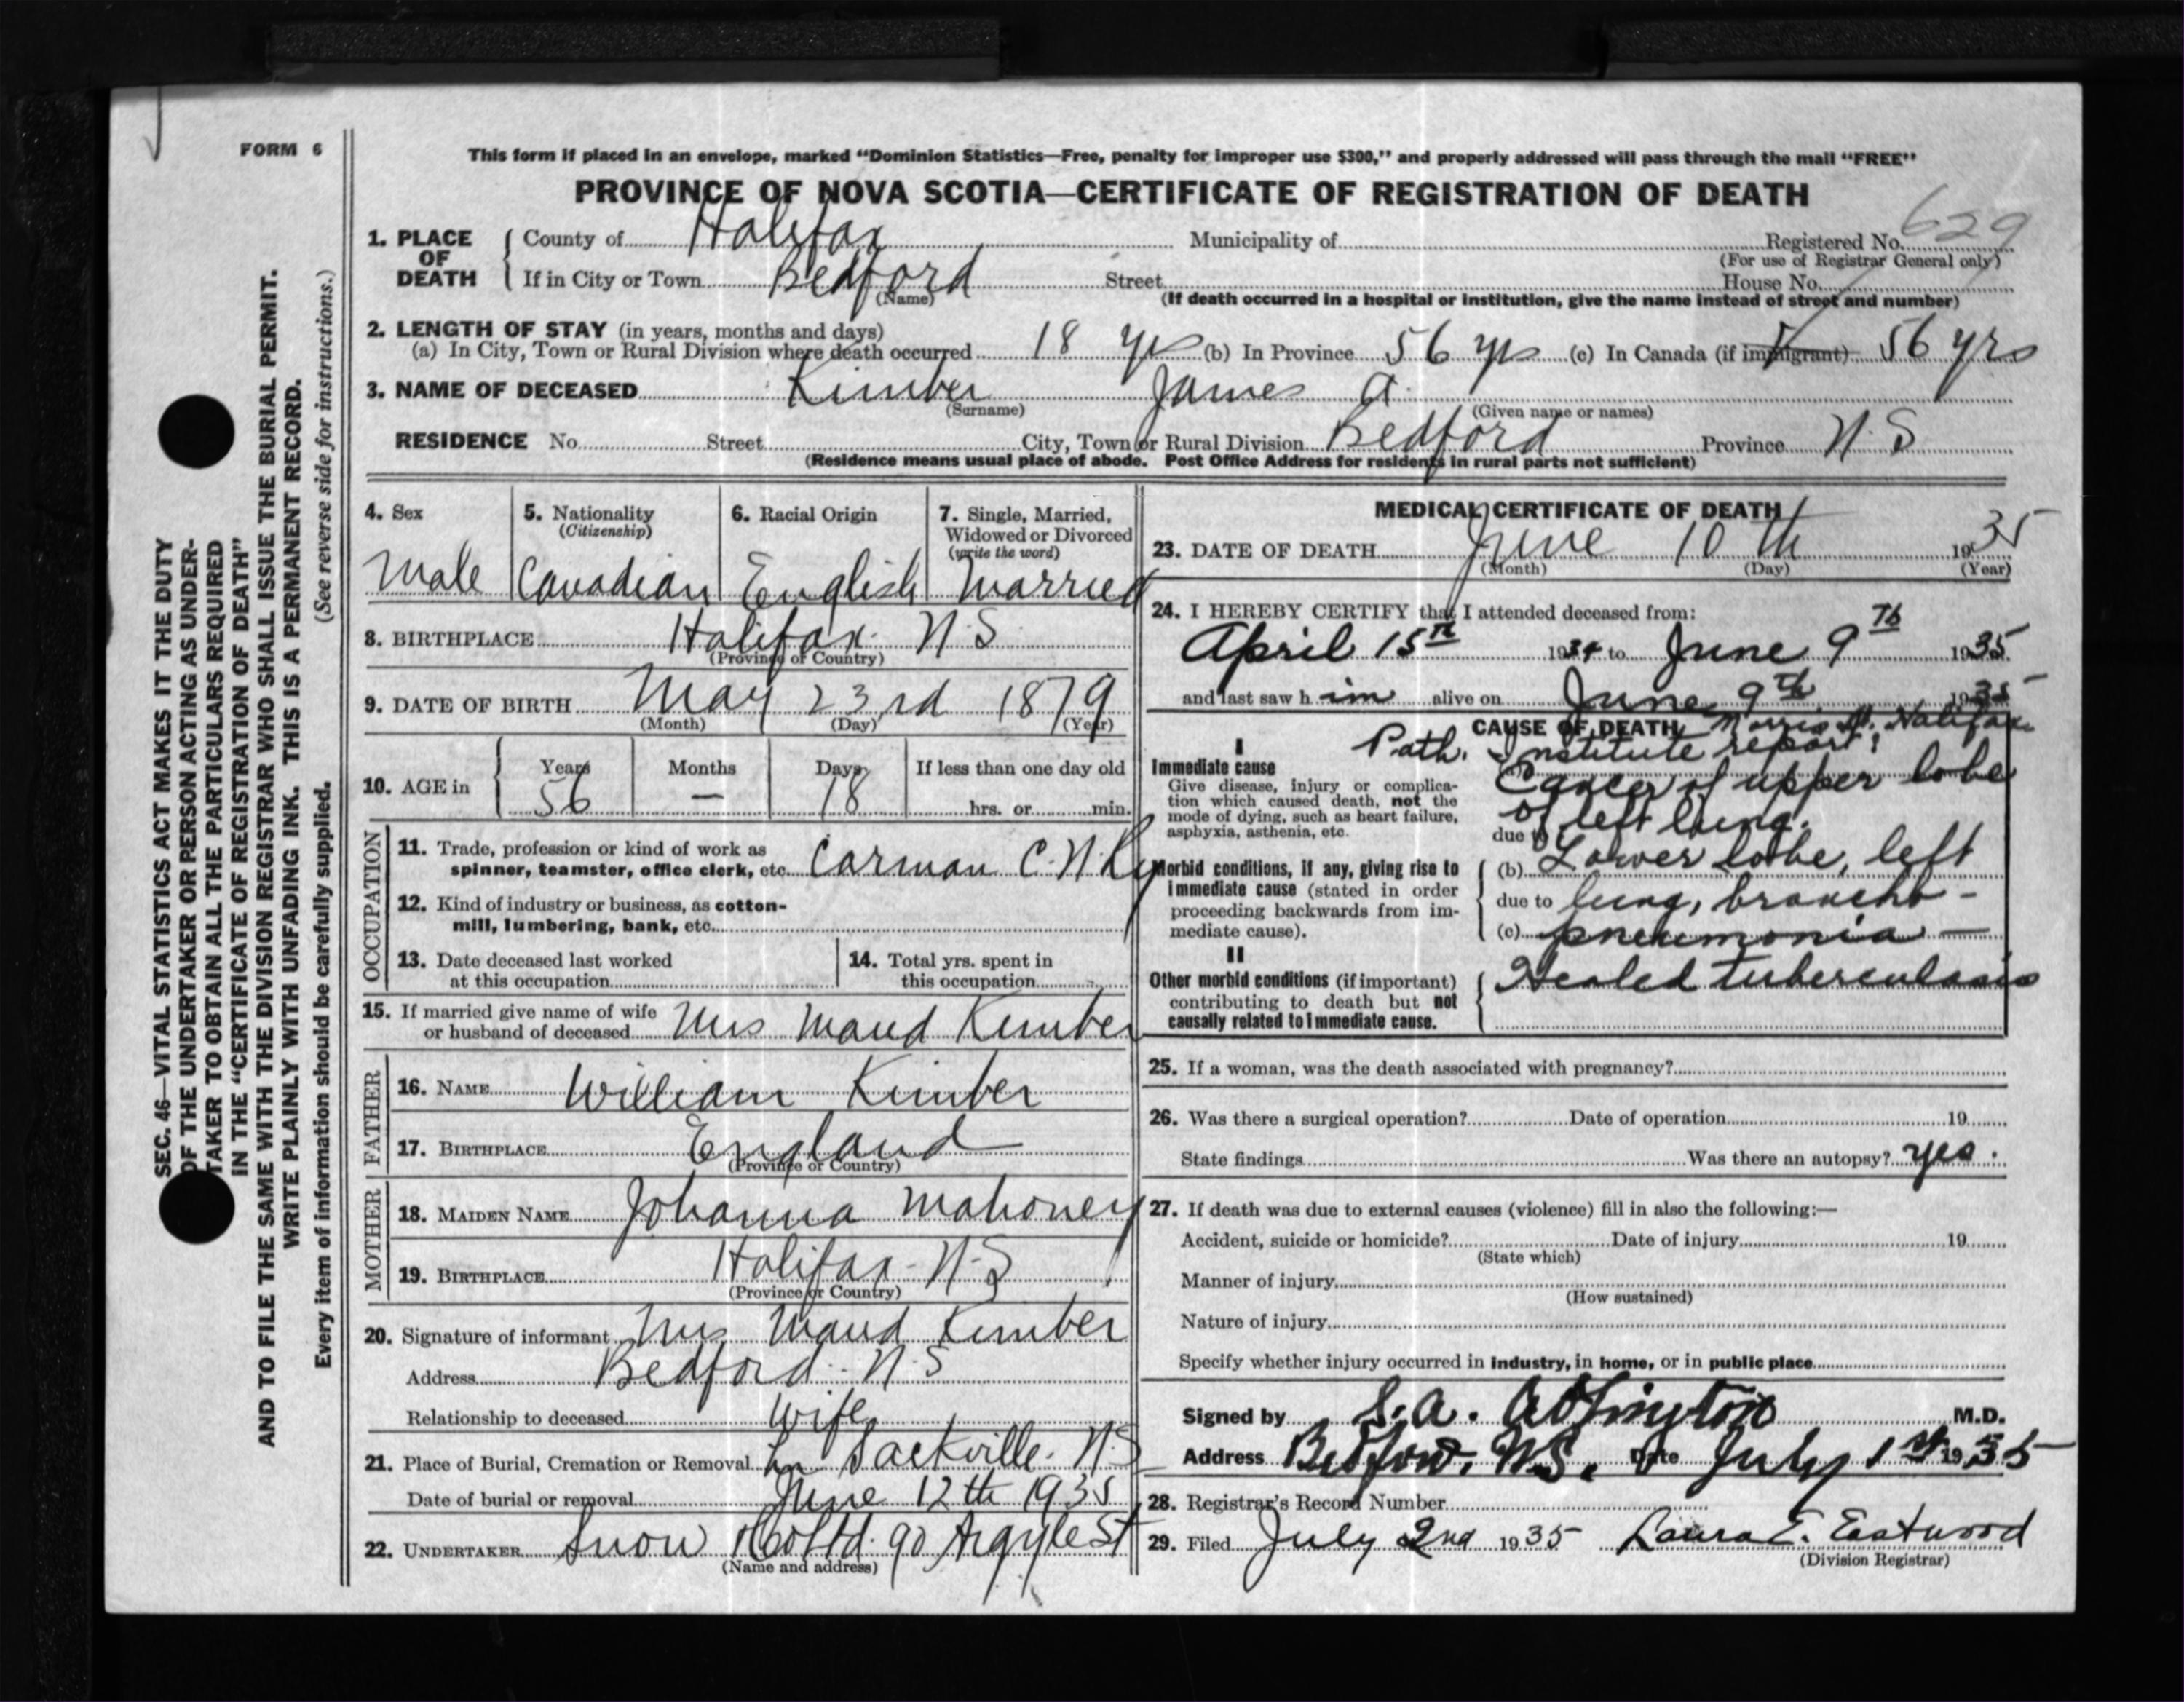 FORM 6
This form if placed in an envelope, marked “Dominion Statistics—Free, penalty for improper use $300,” and properly addressed will pass through the mail “FREE”
PROVINCE OF NOVA SCOTIA—CERTIFICATE OF REGISTRATION OF DEATH
629
1. PLACE OF DEATH { County of Halifax Municipality of Registered No.
(For use of Registrar General only)
If in City or Town Bedford Street House No.
(Name) (If death occurred in a hospital or institution, give the name instead of street and number)
2. LENGTH OF STAY (in years, months and days)
(a) In City, Town or Rural Division where death occurred 18 yrs (b) In Province 56 yrs (c) In Canada (if immigrant) 56 yrs
3. NAME OF DECEASED Kimber James A.
(Surname) (Given name or names)
RESIDENCE No. Street City, Town or Rural Division Bedford Province N.S
(Residence means usual place of abode. Post Office Address for residents in rural parts not sufficient)
4. Sex
Male
5. Nationality
(Citizenship)
Canadian
6. Racial Origin
English
7. Single, Married,
Widowed or Divorced
(write the word)
Married
8. BIRTHPLACE Halifax N.S
(Province or Country)
9. DATE OF BIRTH May 23rd 1879
(Month) (Day) (Year)
10. AGE in { Years Months Days If less than one day old
56 — 18 hrs. or min.
OCCUPATION
11. Trade, profession or kind of work as
spinner, teamster, office clerk, etc. Carman C.N.Ry
12. Kind of industry or business, as cotton-
mill, lumbering, bank, etc.
13. Date deceased last worked
at this occupation
14. Total yrs. spent in
this occupation
15. If married give name of wife
or husband of deceased Mrs Maud Kimber
FATHER
16. NAME William Kimber
17. BIRTHPLACE England
(Province or Country)
MOTHER
18. MAIDEN NAME Johanna Mahoney
19. BIRTHPLACE Halifax-N-S
(Province or Country)
20. Signature of informant Mrs Maud Kimber
Address Bedford N.S
Relationship to deceased Wife
21. Place of Burial, Cremation or Removal Sackville N.S
Date of burial or removal June 12th 1935
22. UNDERTAKER Snow & Co Ltd. 90 Argyle St
(Name and address)
MEDICAL CERTIFICATE OF DEATH
23. DATE OF DEATH June 10th 1935
(Month) (Day) (Year)
24. I HEREBY CERTIFY that I attended deceased from:
April 15th 1934 to June 9th 1935
and last saw him alive on June 9th 1935
CAUSE OF DEATH Morris St. Halifax
Path. Institute report:
I
Immediate cause
Give disease, injury or complica-
tion which caused death, not the
mode of dying, such as heart failure,
asphyxia, asthenia, etc.
(a) Cancer of upper lobe
of left lung.
due to
Morbid conditions, if any, giving rise to
immediate cause (stated in order
proceeding backwards from im-
mediate cause).
(b) Lower lobe, left
due to lung, broncho-
(c) pneumonia —
II
Other morbid conditions (if important)
contributing to death but not
causally related to immediate cause.
Healed tuberculosis
25. If a woman, was the death associated with pregnancy?
26. Was there a surgical operation? Date of operation 19
State findings Was there an autopsy? yes.
27. If death was due to external causes (violence) fill in also the following:—
Accident, suicide or homicide? Date of injury 19
(State which)
Manner of injury
(How sustained)
Nature of injury
Specify whether injury occurred in industry, in home, or in public place
Signed by S.A. M.D.
Address Bedford, N.S. Date July 1st 1935
28. Registrar's Record Number
29. Filed July 2nd 1935 Laura E. Eastwood
(Division Registrar)
SEC. 46—VITAL STATISTICS ACT MAKES IT THE DUTY
OF THE UNDERTAKER OR PERSON ACTING AS UNDER-
TAKER TO OBTAIN ALL THE PARTICULARS REQUIRED
IN THE “CERTIFICATE OF REGISTRATION OF DEATH”
AND TO FILE THE SAME WITH THE DIVISION REGISTRAR WHO SHALL ISSUE THE BURIAL PERMIT.
WRITE PLAINLY WITH UNFADING INK. THIS IS A PERMANENT RECORD.
Every item of information should be carefully supplied. (See reverse side for instructions.)